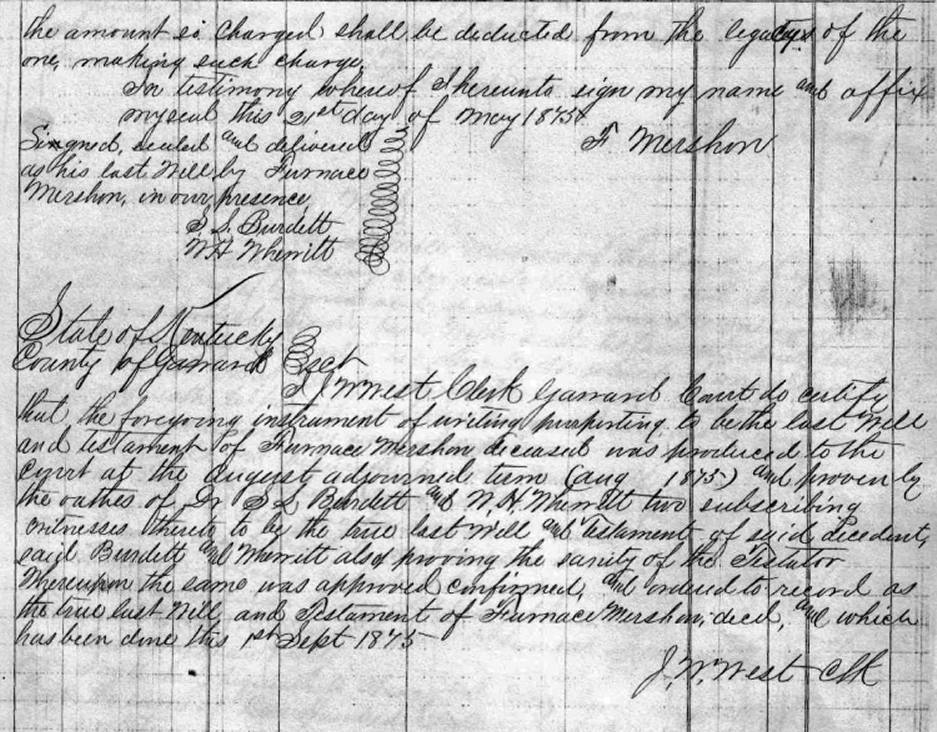 the amount so charged shall be deducted from the legacys of the
one, making such charge,
In testimony whereof I hereunto sign my name and affix
my seal this 21st day of May 1875
F Mershon
Signed, sealed and delivered
as his last Will by Furnace
Mershon, in our presence
S. S. Burdett
W H Wherritt
State of Kentucky
County of Garrard Sct
I J W West Clerk Garrard Court do certify
that the foregoing instrument of writing purporting to be the last Will
and testament of Furnace Mershon deceased was produced to the
Court at the August adjourned term (aug 1875) and proven by
the oathes of Dr S S Burdett and W. H. Wherritt two subscribing
witnesses thereto to by the true last Will and Testament of said decedent,
said Burdett and Wherritt also proving the sanity of the Testator
Whereupon the same was approved confirmed, and ordered to record as
the true last Will, and Testament of Furnace Mershon, decd, and which
has been done this 1st Sept 1875
J. W. West Clk